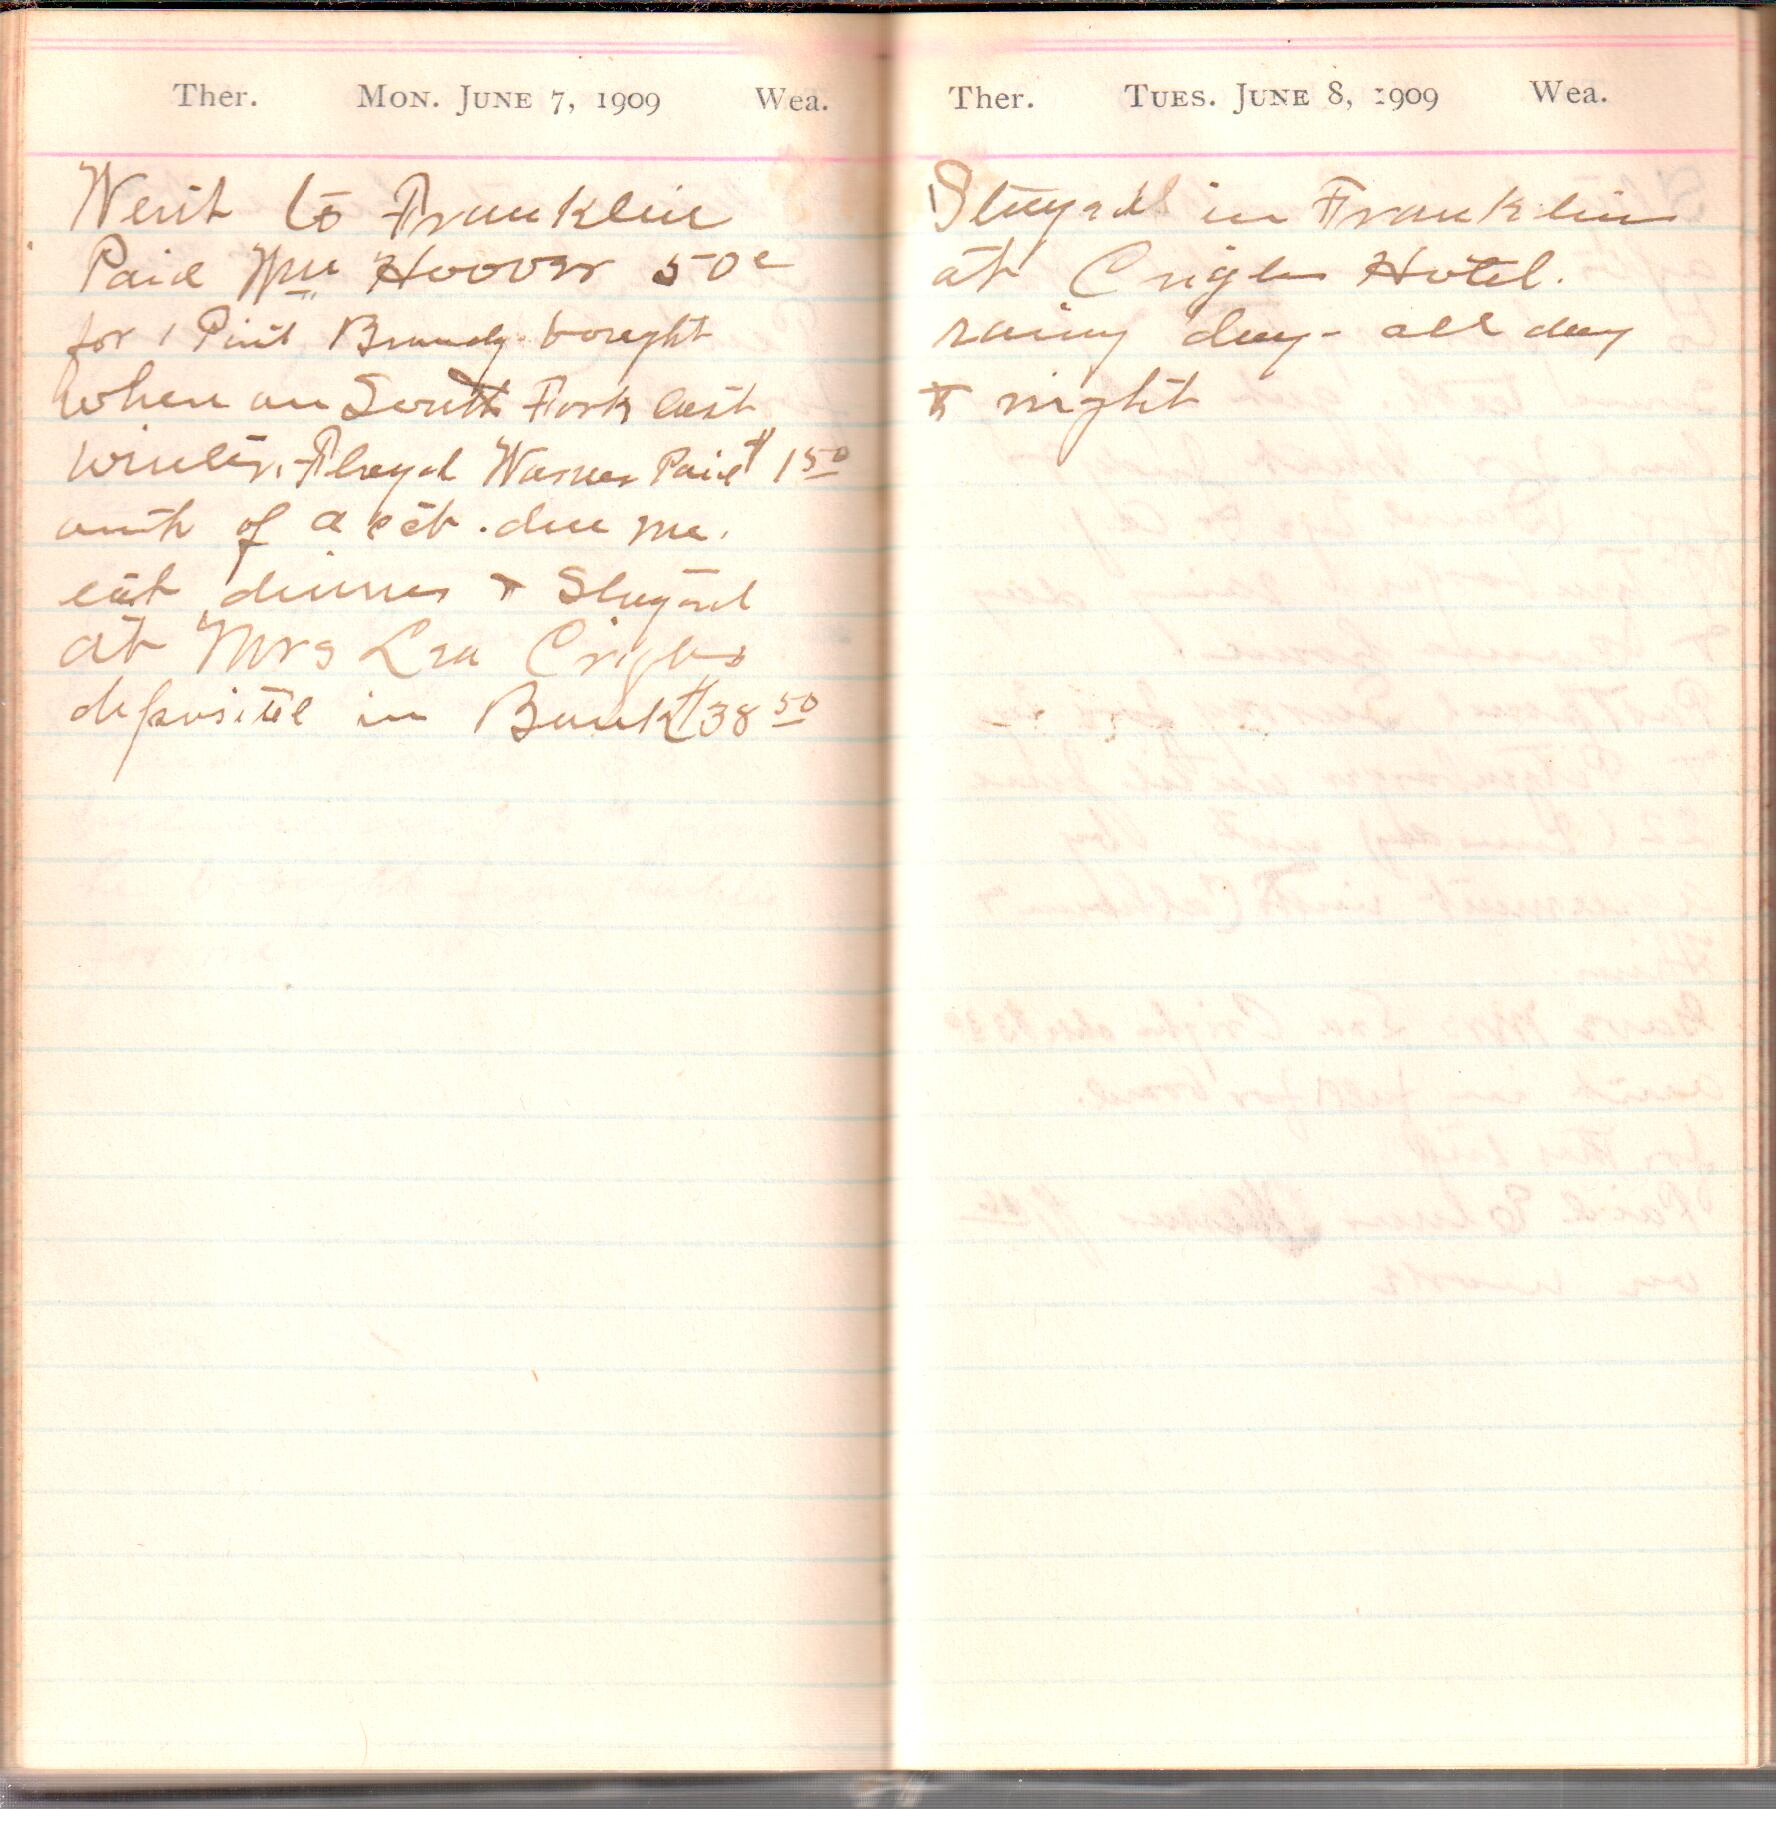 Ther. MON. JUNE 7, 1909 Wea.
Went to Franklin
Paid Wm Hoover 50c
for 1 Pint Brandy bought
when on South Fork last
winter. Floyd Warner Paid $1 50
amt of acct. due me.
eat dinner & Stayed
at Mrs Lea Crigler
deposited in Bank $38 50
Ther. TUES. JUNE 8, 1909 Wea.
Stayed in Franklin
at Crigler Hotel.
rainy day - all day
& night